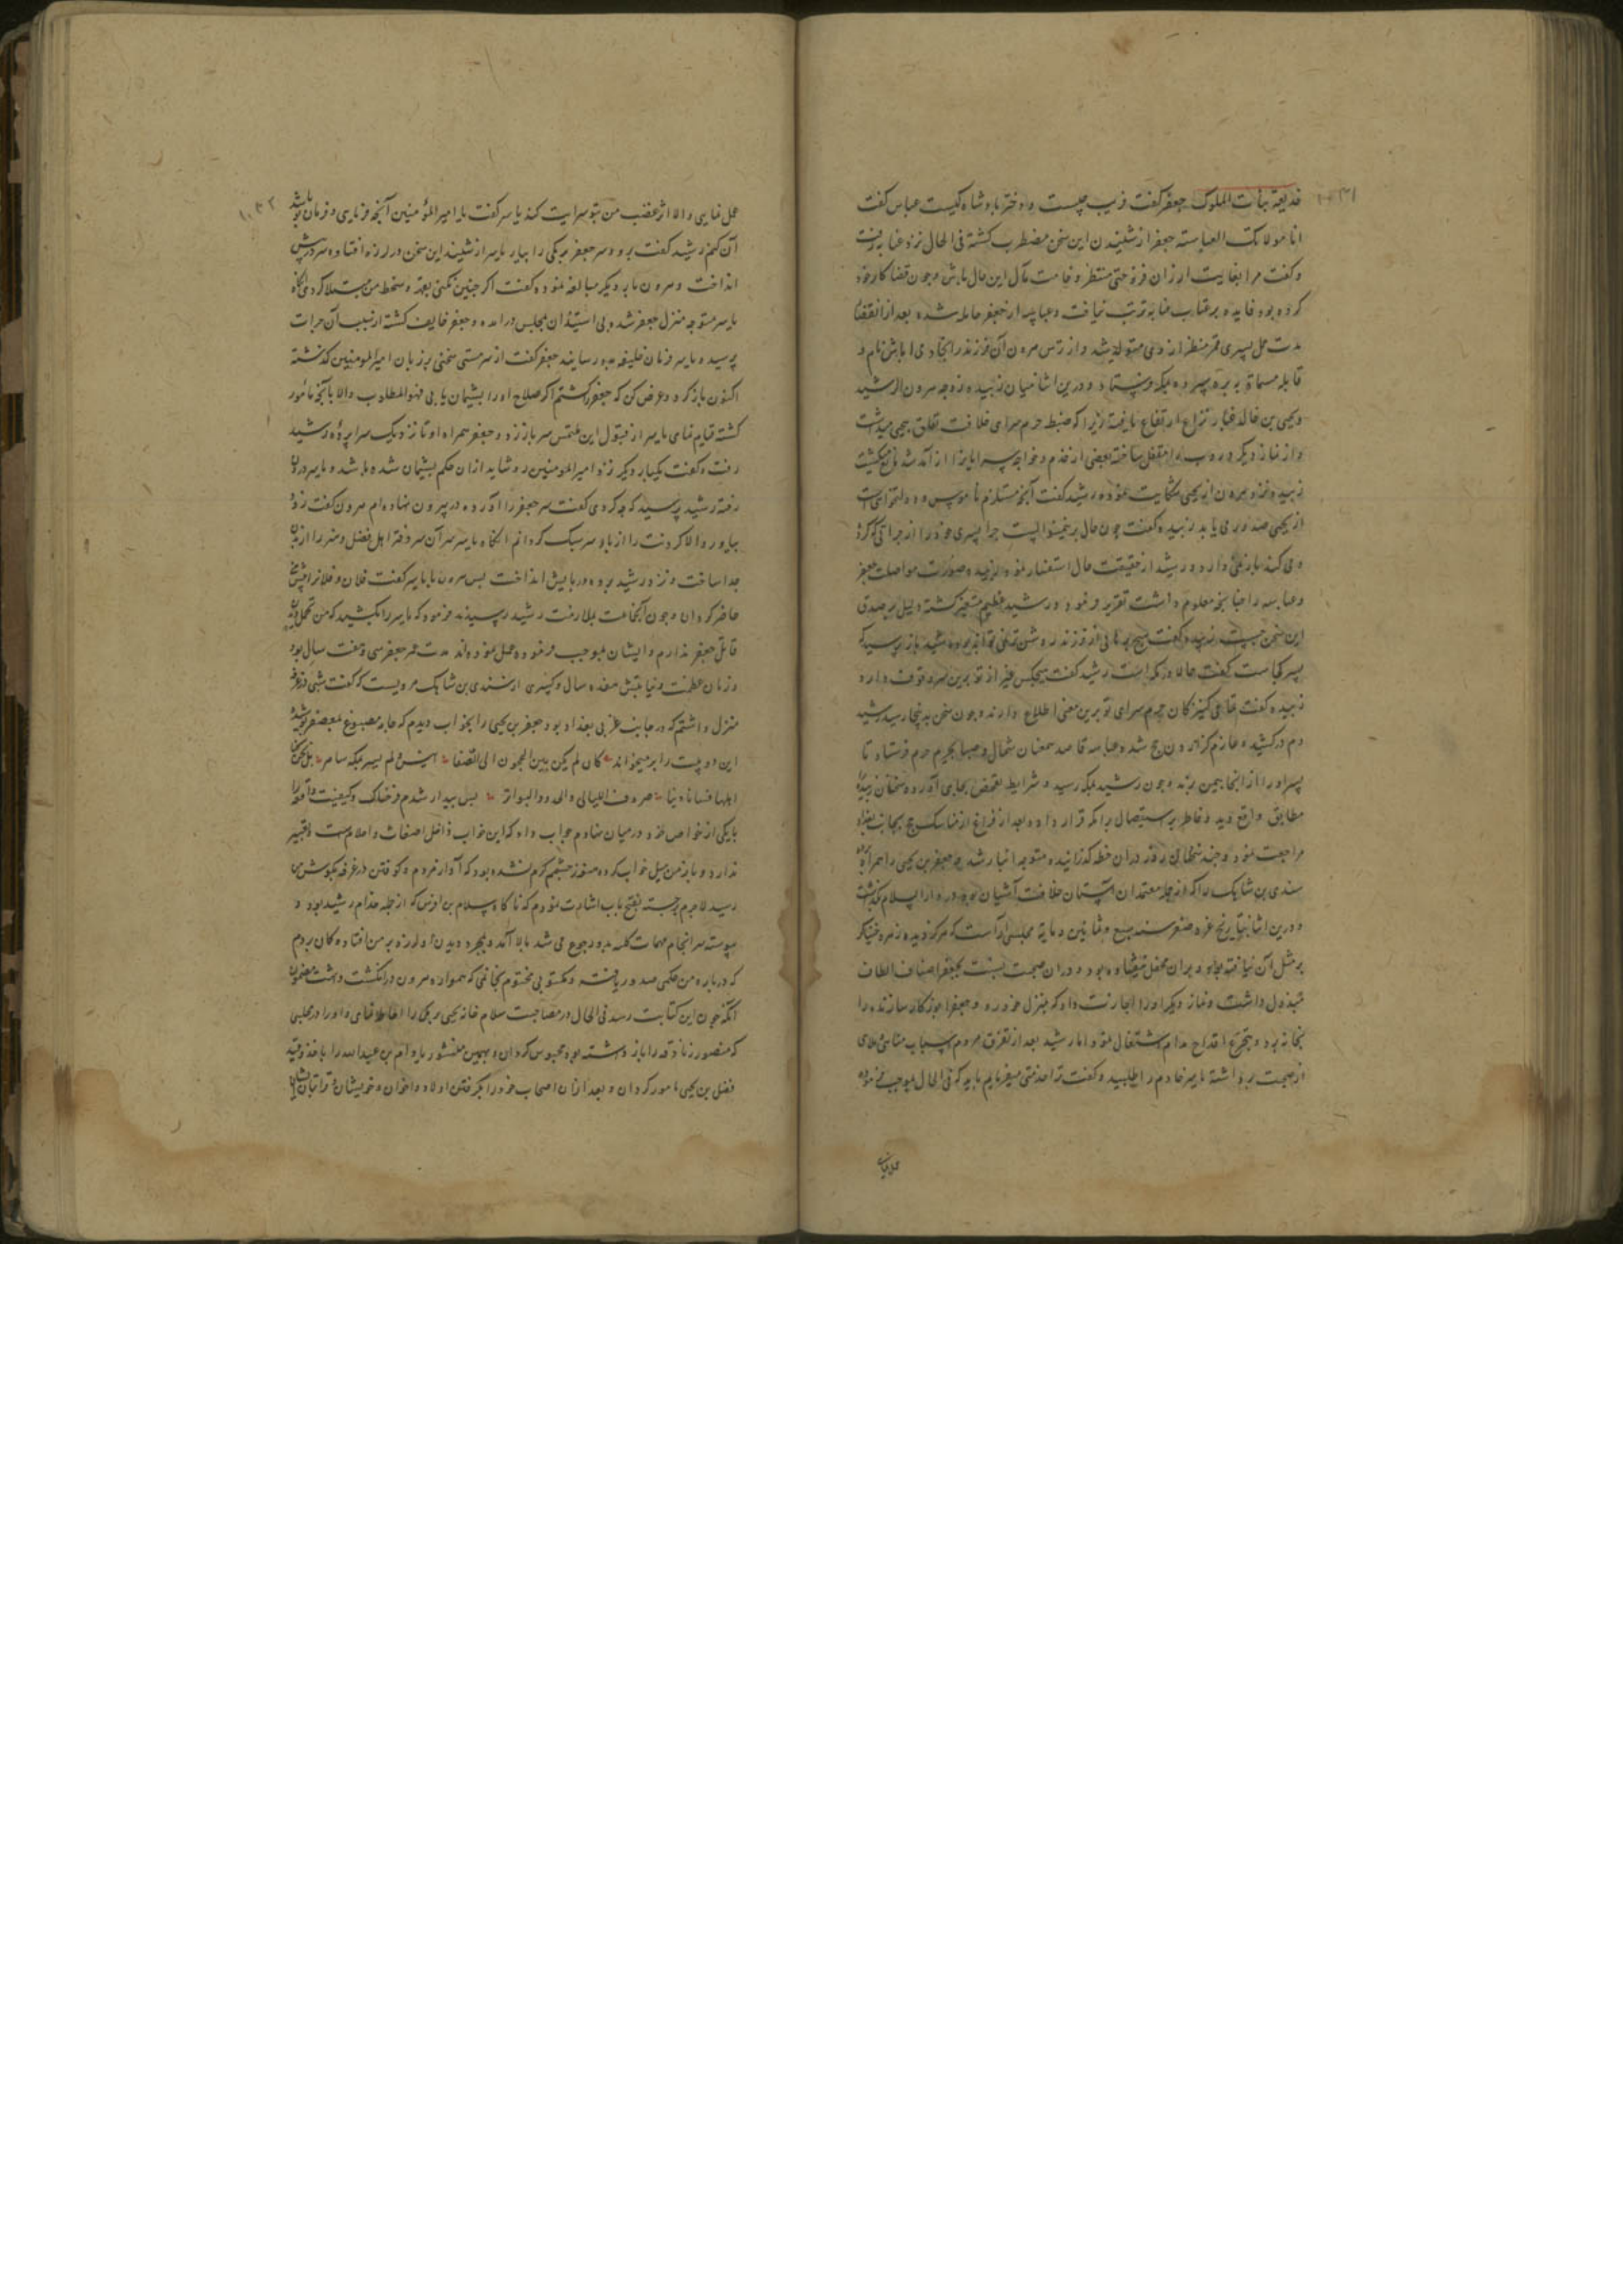 خدیعة بنات الملوک جعفر گفت فریب چیست و دختر پادشاه کیست عباسه گفت
انا مولاتک العباسة جعفر از شنیدن این سخن مضطرب گشته فی الحال نزد عتابه رفت
و گفت مرا بغایت ارزان فروختی منتظر وخامت مآل این حال باش و چون قضا کار خود
کرده بود فایده بر عتاب عتابه ترتب نیافت و عباسه از جعفر حامله شده بعد از انقضای
مدت حمل پسری قمر منظر از وی متولد شد و از ترس هرون آن فرزند را بخادمی ریاش نام و
قابله مسماة به بره سپرده بمکه فرستاد و درین اثنا میان زبیده زوجه هرون الرشید
و یحیی بن خالد غبار نزاع ارتفاع یافت زیرا که ضبط حرم سرای خلافت تعلق بیحیی میداشت
و از نماز دیگر در بها را مقفل ساخته بعضی از خدم و خواجه سرایانرا از آمد شد مانع میگشت
زبیده نزد هرون از یحیی شکایت نموده رشید گفت آنچه مستلزم ناموس و دولتخواهی است
از یحیی صدور می یابد زبیده گفت چون حال برینمنوالست چرا پسر خود را از جراتی که کرده
و می کند باز نمی دارد و رشید از حقیقت حال استفسار نموده زبیده صورت مواصلت جعفر
و عباسه را چنانچه معلوم داشت تقریر فرمود و رشید عظیم متغیر گشته دلیل بر صدق
این سخن چیست زبیده گفت هیچ برهانی از فرزند روشن تر نمی تواند بود رشید باز پرسید که
پسر کجاست گفت حالا در مکه است رشید گفت هیچکس غیر از تو برین سر وقوف دارد
زبیده گفت تمامی کنیزکان حرم سرای تو برین معنی اطلاع دارند و چون سخن بدینجا رسید رشید
دم درکشیده عازم گزاردن حج شد و عباسه قاصد سمعنان شمال و صبا بحریم حرم فرستاد تا
پسر او را از انجا بیمن برند و چون رشید بمکه رسید و شرایط تفحص بجای آورده سخنان زبیده
مطابق واقع دید و خاطر بر استیصال برامکه قرار داده بعد از فراغ از مناسک حج بجانب بغداد
مراجعت نمود و چند روز دران خطه گذرانیده متوجه انبار شد و جعفر بن یحیی را همراه برده
سندی بن شاهک را که از جمله معتمدان آستان خلافت آشیان بود در دار السلام گذاشت
و درین اثنا بتاریخ غره صفر سنه سبع و ثمانین و مایة مجلسی آراست که هرگز دیده زهره خنیاگر
بر مثل آن نیافته بود و دران صحبت نسبت بجعفر اصناف الطاف
مبذول داشت و نماز دیگر او را اجازت داد که بمنزل خود رود و جعفر ابوزکار سازنده را
بخانه برد و بتجرع اقداح مدام اشتغال نمود اما رشید بعد از تفرق مردم اسباب
از صحبت برداشته یاسر خادم را طلبید و گفت ترا خدمتی میفرمایم باید که فی الحال بموجب فرموده
عمل نمای
عمل نمایی و الا اثر غضب من بتو سرایت کند یاسر گفت یا امیر المؤمنین آنچه فرمایی و فرمان تو باشد
آن کنم رشید گفت برو و سر جعفر برمکی را بیار یاسر از شنیدن این سخن در لرزه افتاده سر در پیش
انداخت و هرون بار دیگر مبالغه نموده گفت اگر چنین نکنی بقهر و سخط من مبتلا گردی انگاه
یاسر متوجه منزل جعفر شد و بی استیذان بمجلس درامده و جعفر خایف گشته از سبب آن جرات
پرسید و یاسر فرمان خلیفه بدو رسانید جعفر گفت از سر مستی سخنی بر زبان امیر المومنین گذشته
اکنون بازگرد و عرض کن که جعفر را کشتم اگر صلاح او را پشیمان یابی فهو المطلوب والا بآنچه مأمور
گشته قیام نمای یاسر از قبول این ملتمس سر باز زد و جعفر همراه او تا نزدیک سراپرده رشید
رفت و گفت یکبار دیگر نزد امیر المومنین رو شاید از ان حکم پشیمان شده باشد و یاسر درون
رفته رشید پرسید که چه کردی گفت سر جعفر را آورده در بیرون نهاده ام هرون گفت زود
بیاور و الا گردنت را از بار سر سبک گردانم انگاه یاسر سر آن سر دفتر اهل فضل و هنر را از تن
جدا ساخت و نزد رشید برده در پایش انداخت پس هرون با یاسر گفت فلان و فلانرا پیش من
حاضر گردان و چون آنجماعت بملازمت رشید رسیدند فرمود که یاسر را بکشید که من تحمل دیدن
قاتل جعفر ندارم و ایشان بموجب فرموده عمل نموده اند مدت عمر جعفر سی و هفت سال بود
و زمان عظمت و نیابتش هفده سال و کسری از سندی بن شاهک مرویست که گفت شبی در غرفه
منزل داشتم که در جانب غربی بغداد بود جعفر بن یحیی را بخواب دیدم که جامه مصبوغ بمعصفر پوشیده
این دو بیت را بر میخواند کان لم یکن بین الحجون الی الصفا انیس و لم یسمر بمکه سامر بلی نحن کنا
اهلها فابادنا صروف اللیالی و الجدود العواثر پس بیدار شدم فزعناک و کیفیت واقعه را
با یکی از خواص خود در میان نهادم جواب داد که این خواب داخل اضغاث و احلام است و تعبیر
ندارد و باز من میل خواب کرده هنوز چشمم گرم نشده بود که آواز مردم و کوفتن در غرفه بگوش من
رسید لاجرم برجسته بفتح باب اشارت نمودم که ناگاه سلام بن اوس که از جمله خدام رشید بود و
پیوسته سر انجام مهمات کلیه بدو رجوع می شد بالا آمد و بمجرد دیدن او لرزه بر من افتاد و گمان بردم
که درباره من حکمی صدور یافته و مکتوبی مختوم بخاتمی که همواره هرون در انگشت داشت مضمون
آنکه چون این کتابت رسد فی الحال در مصاحبت سلام خانه یحیی برمکی را احاطه نمای و او را در محبسی
که منصور زنادقه را باز داشته بود محبوس گردان و بهمین منشور بادام بن عبدالله را باخذ و قید
فضل بن یحیی مامور گردان و بعد ازان اصحاب خود را بگرفتن اولاد و اخوان و خویشان و قراباتشان